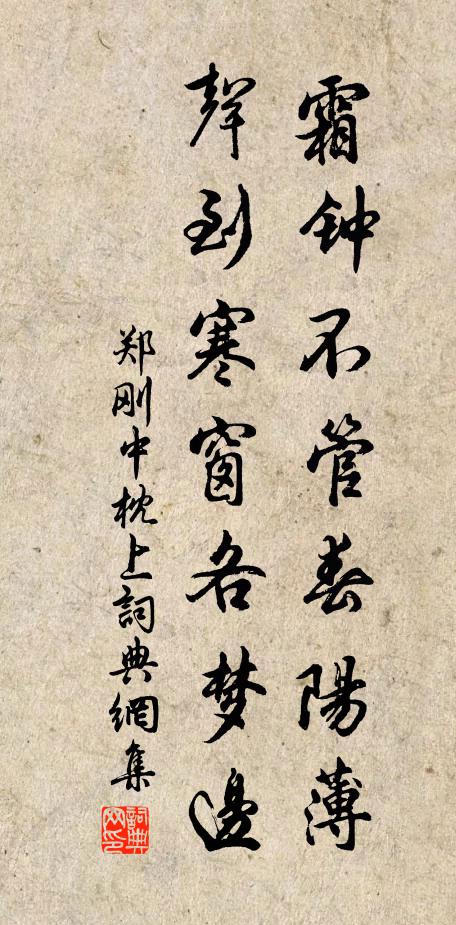 霜钟不管春陽薄
聲到寒窗各梦邊
郑刚中枕上詞典網集
詞典网印